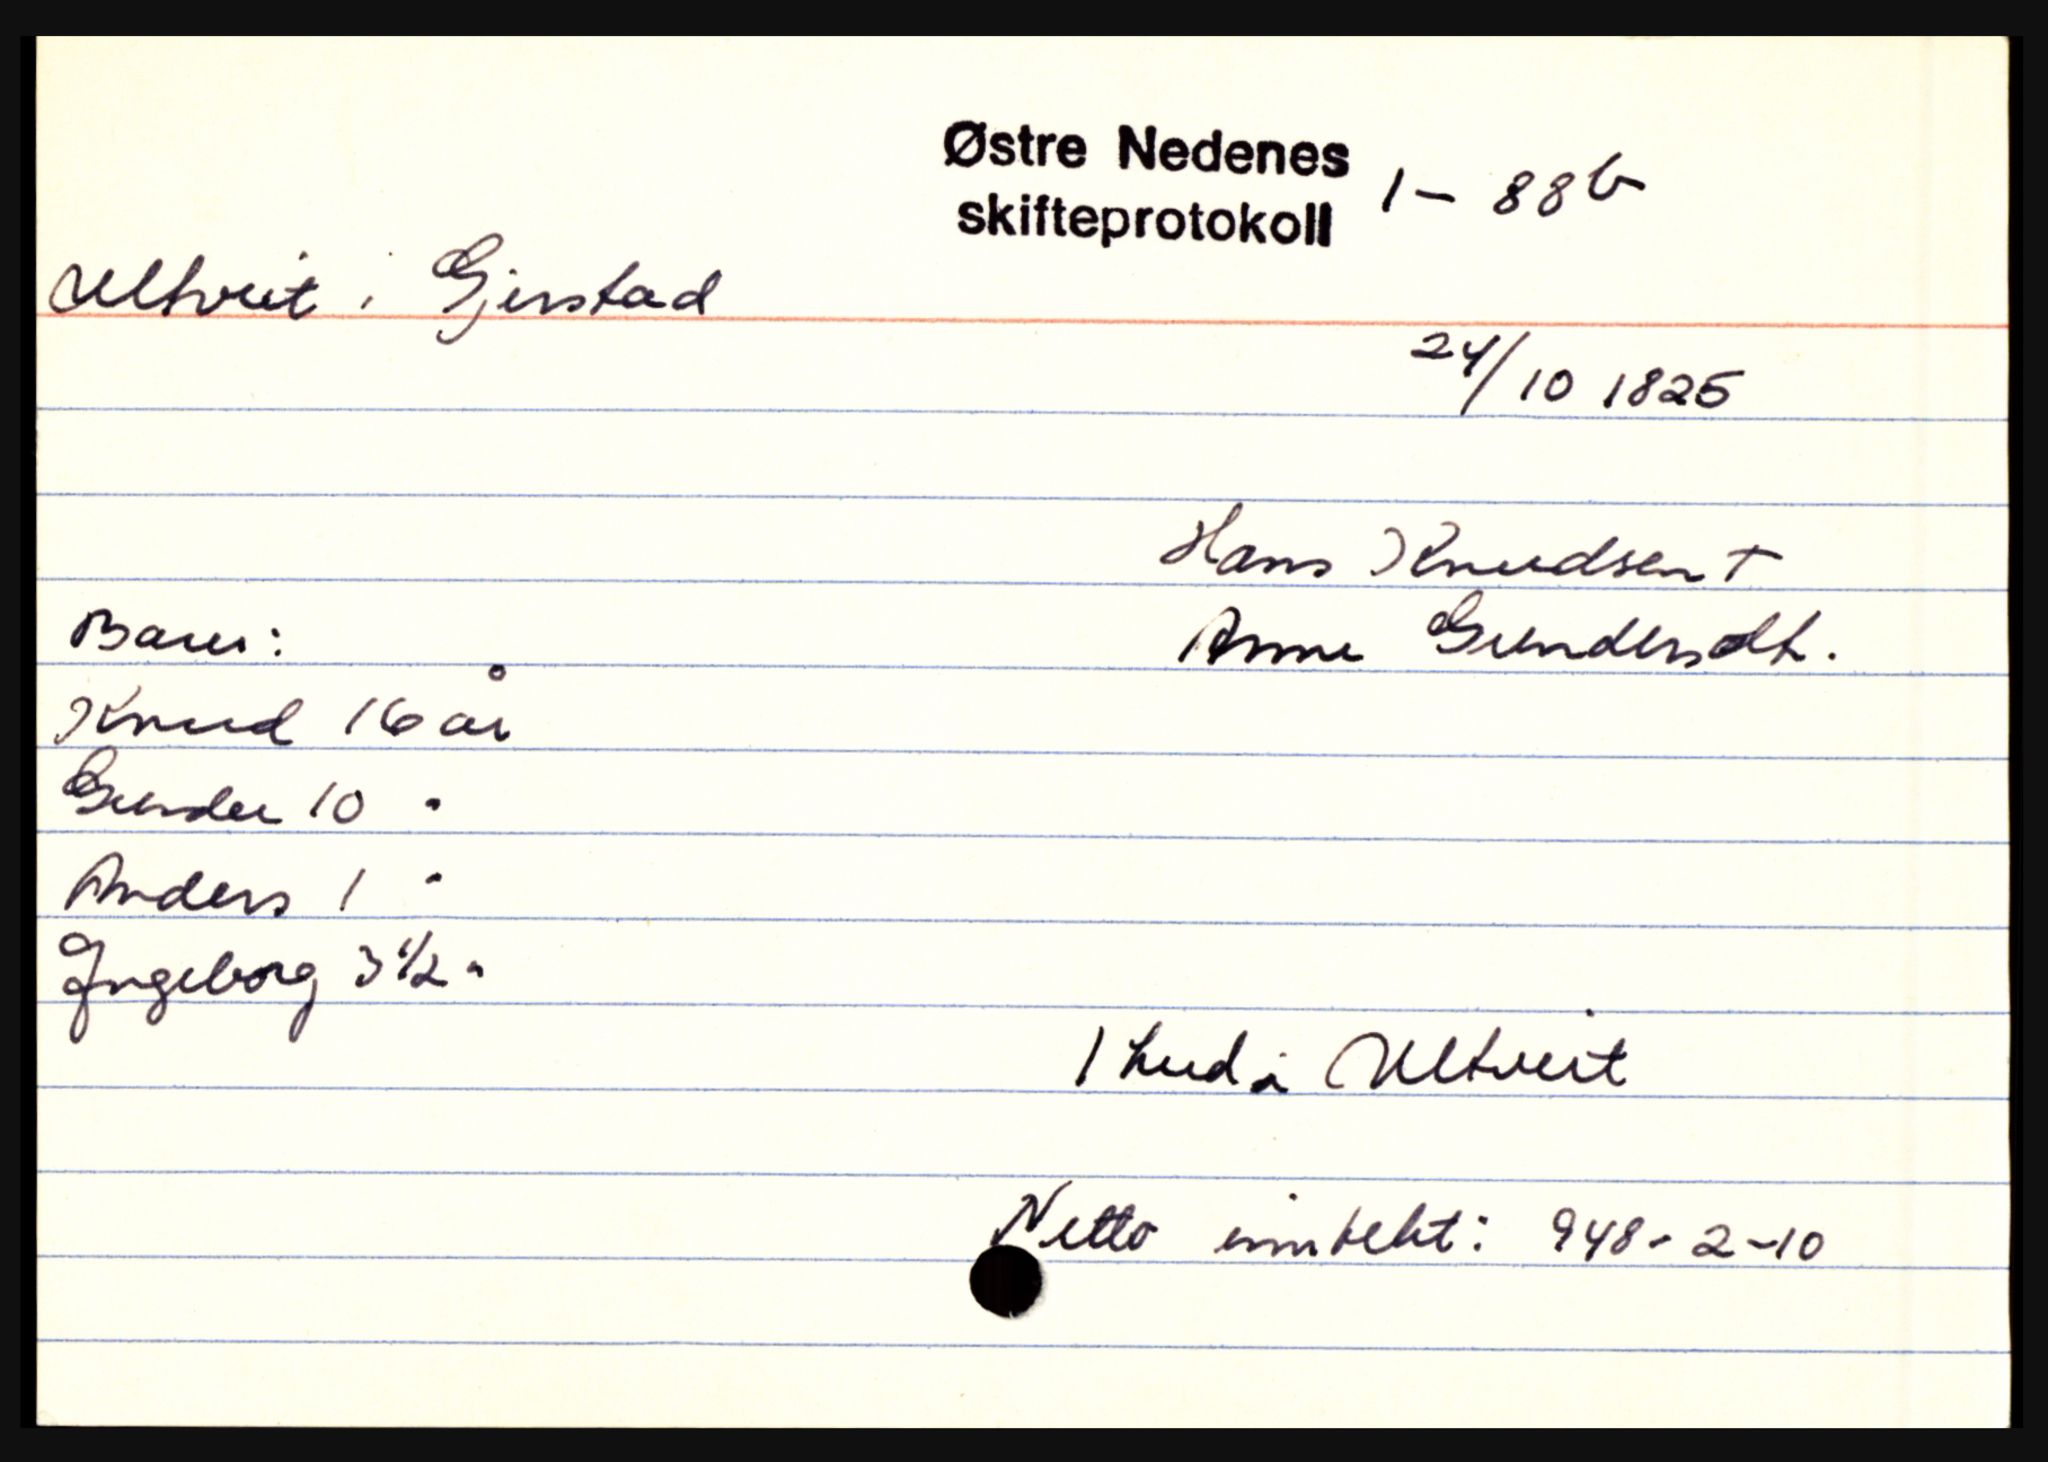 Østre Nedenes
skifteprotokoll 1 – 88b
Ultveit i Gjerstad
24/10 1825
Hans Knudsen †
Anne Gundersdt.
Barn:
Knud 16 år
Gunder 10 "
Anders 1 "
Ingeborg 3 1/2 "
1 hud i Ultveit
Netto inntekt: 948-2-10